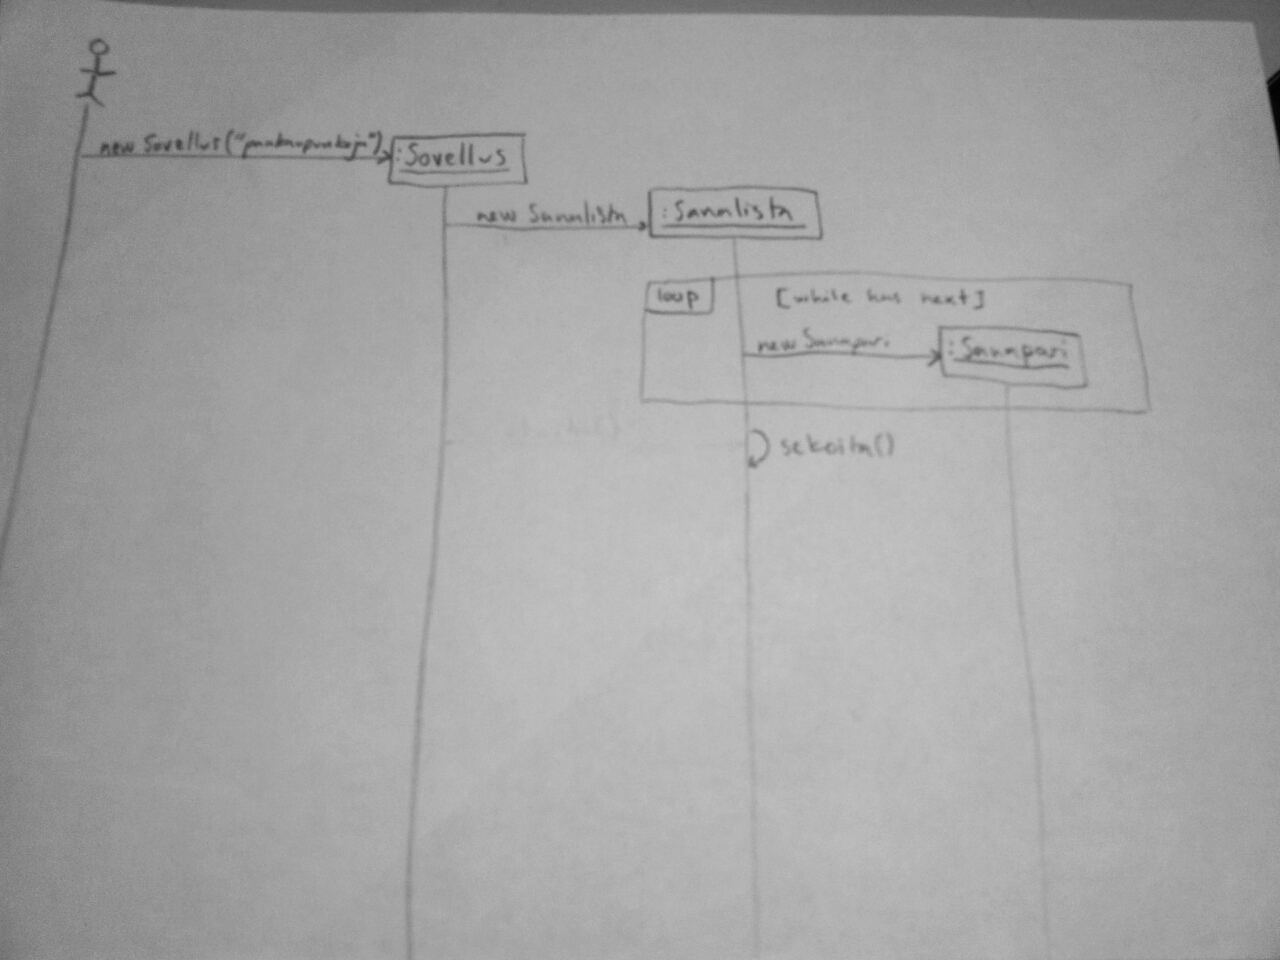 new Sovellus("
:Sovellus
new Sanalista
:Sanalista
loop
[while has next]
new Sanapari
:Sanapari
sekoita()